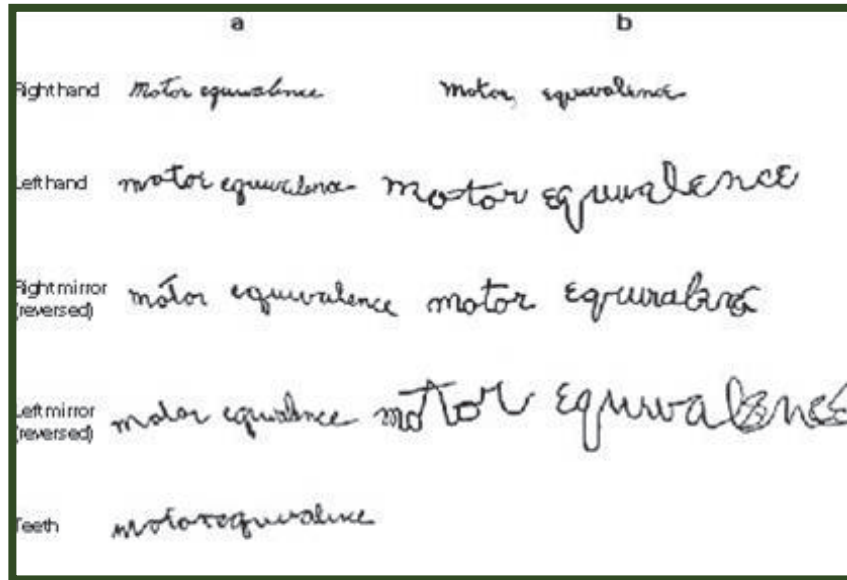 a b
Right hand Motor equivalence Motor, equivalence
Left hand motor equivalence motor equvalence
Right mirror motor equivalence motor
(reversed)
Left mirror motor equivalence motor equivalence
(reversed)
Teeth motor equivalence